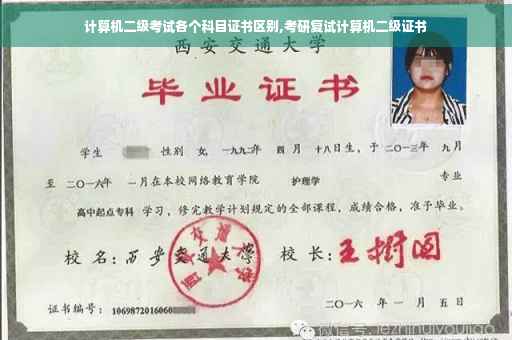 计算机二级考试各个科目证书区别,考研复试计算机二级证书
西安交通大学
毕业证书
学生 性别 女, 一九九二年 四月 十八日生, 于 二〇一三年 九月
至 二〇一六年 一月在本校网络教育学院 护理学 专业
高中起点专科 学习, 修完教学计划规定的全部课程, 成绩合格, 准予毕业。
校名: 西安交通大学 校长: 王树国
证书编号: 1069872016060
二〇一六年 一月 五日
微信号: jiezhihuiyoujiao